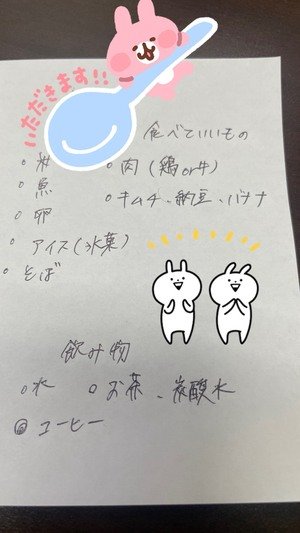 いただきます!!
食べていいもの
肉(鶏or牛)
魚
キムチ、納豆、バナナ
卵
アイス(氷菓)
そば
飲み物
水
お茶、炭酸水
コーヒー